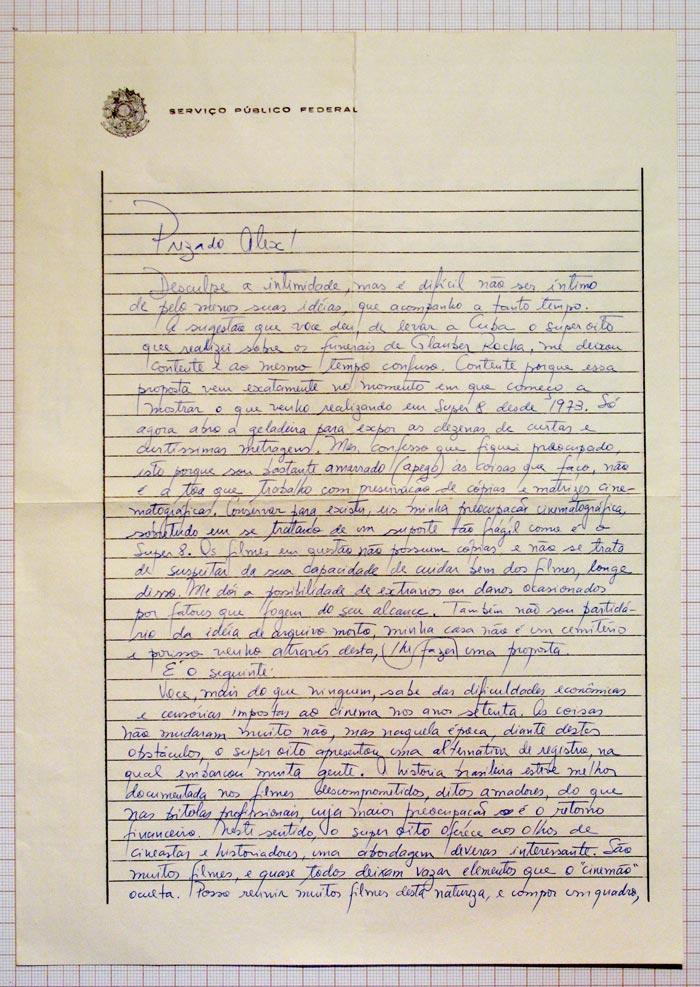 SERVIÇO PÚBLICO FEDERAL
Prezado Alex!
Desculpe a intimidade, mas é difícil não ser íntimo
de pelo menos suas idéias, que acompanho a tanto tempo.
A sugestão que voce deu, de levar a Cuba o super oito
que realizei sobre os funerais de Glauber Rocha, me deixou
contente e ao mesmo tempo confuso. Contente porque essa
proposta vem exatamente no momento em que começo a
mostrar o que venho realizando em Super 8 desde 1973. Só
agora abro a geladeira para expor as dezenas de curtas e
curtíssimas metragens. Mas, confesso que fiquei preocupado
isto porque sou bastante amarrado (apego) as coisas que faço, não
é a toa que trabalho com preservação de cópias e matrizes cine-
matográficas. Conservar para existir, eis minha preocupação cinematográfica,
sobretudo em se tratando de um suporte tão frágil como é o
Super 8. Os filmes em questão não possuem cópias e não se trata
de suspeitar da sua capacidade de cuidar bem dos filmes, longe
disso. Me dói a possibilidade de extravios ou danos ocasionados
por fatores que fogem do seu alcance. Também não sou partidá-
rio da idéia de arquivo morto, minha casa não é um cemitério
e porisso venho através desta, (lhe fazer) uma proposta.
É o seguinte:
Voce, mais do que ninguem, sabe das dificuldades econômicas
e censórias impostas ao cinema nos anos setenta. As coisas
não mudaram muito não, mas naquela época, diante destes
obstáculos, o super oito apresentou uma alternativa de registro, na
qual embarcou muita gente. A história brasileira esteve melhor
documentada nos filmes descomprometidos, ditos amadores, do que
nas bitolas profissionais, cuja maior preocupação é o retorno
financeiro. Neste sentido, o super oito oferece aos olhos de
cineastas e historiadores, uma abordagem deveras interessante. São
muitos filmes, e quase todos deixam vazar elementos que o "cinemão"
oculta. Posso reunir muitos filmes desta natureza, e compor um quadro,